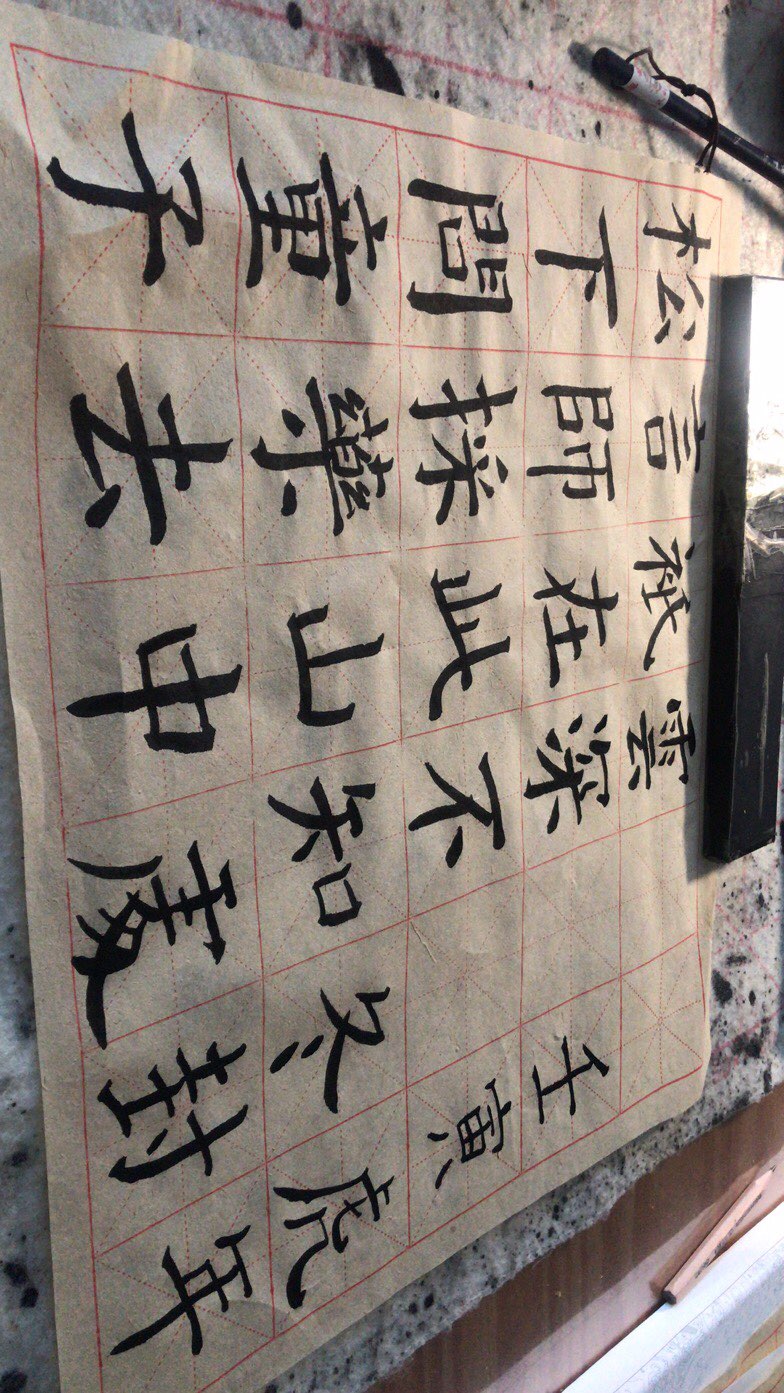 松下問童子
言師採藥去
祇在此山中
雲深不知處
冬封
壬寅虎年